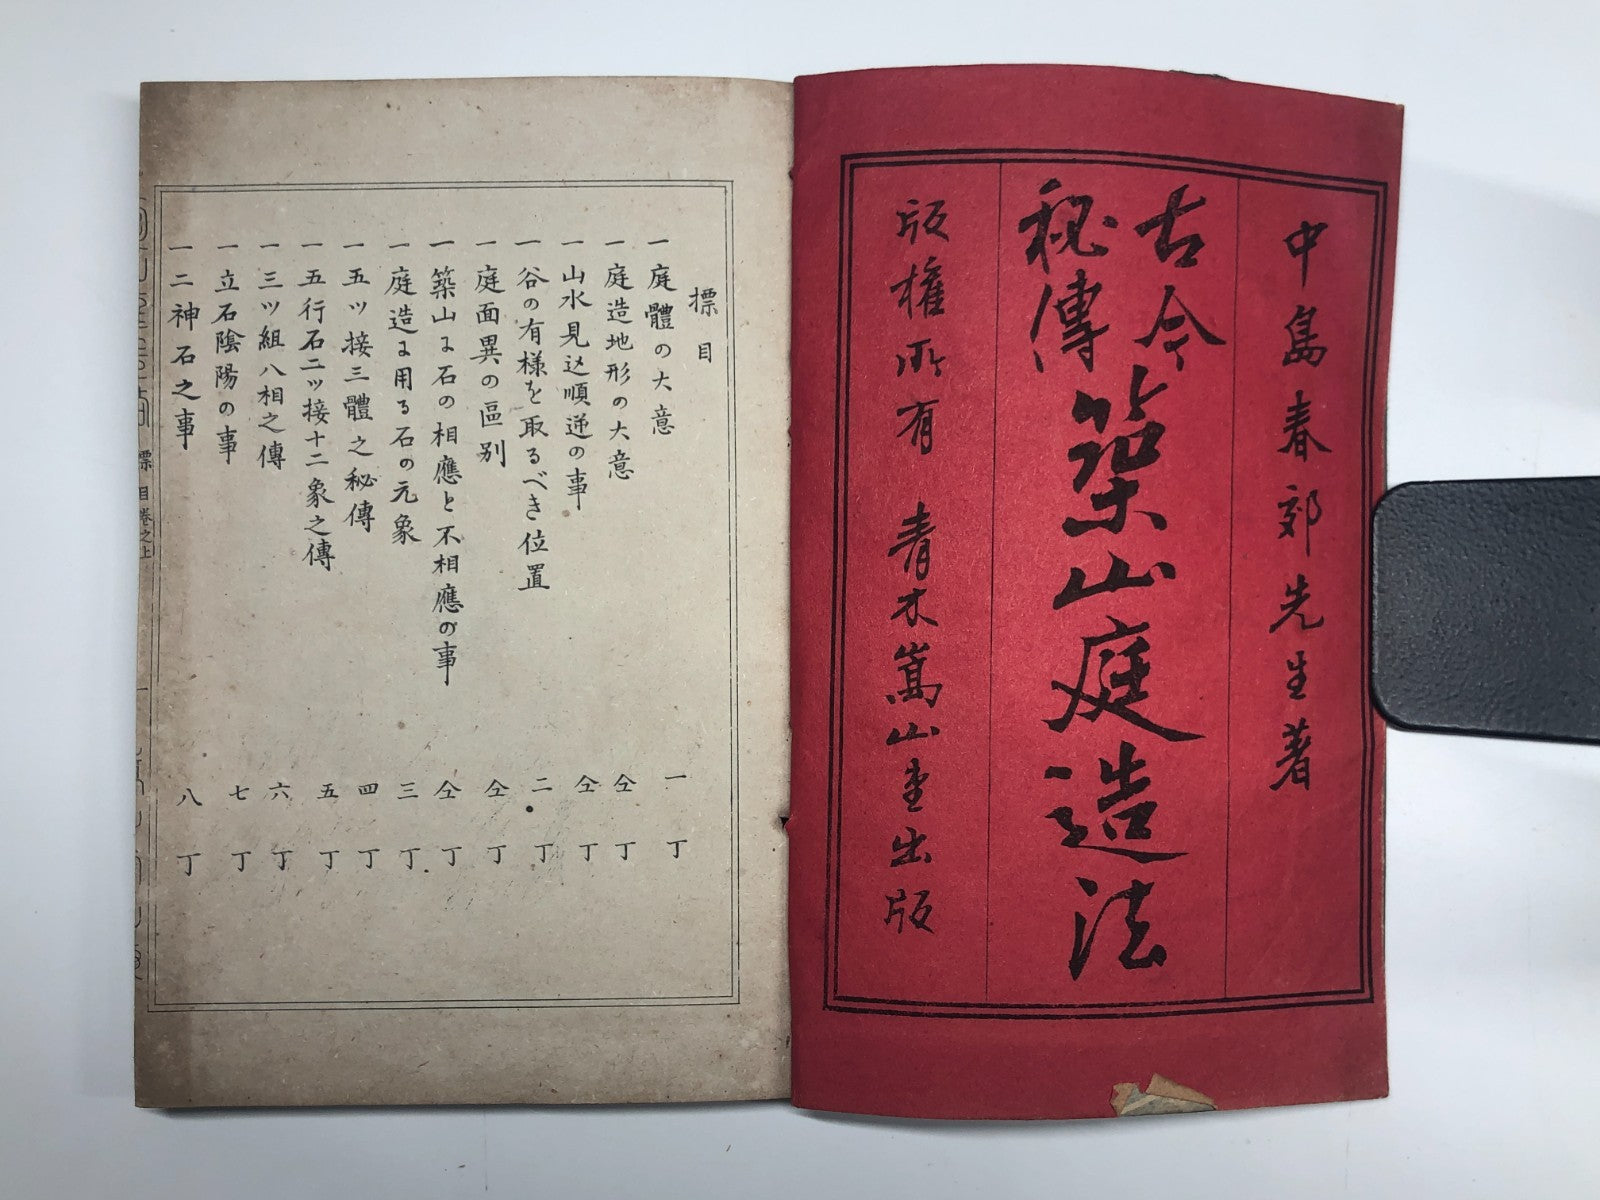 中島春郊先生著
古今
秘傳
築山庭造法
版權所有 青木嵩山堂出版
標目
一庭體の大意 一丁
一庭造地形の大意 仝丁
一山水見込順逆の事 仝丁
一谷の有樣を取るべき位置 二丁
一庭面異の區別 仝丁
一築山に石の相應と不相應の事 仝丁
一庭造に用る石の元象 三丁
一五ツ接三體之秘傳 四丁
一五行石二ツ接十二象之傳 五丁
一三ツ組八相之傳 六丁
一立石陰陽の事 七丁
一二神石之事 八丁
標目卷之上